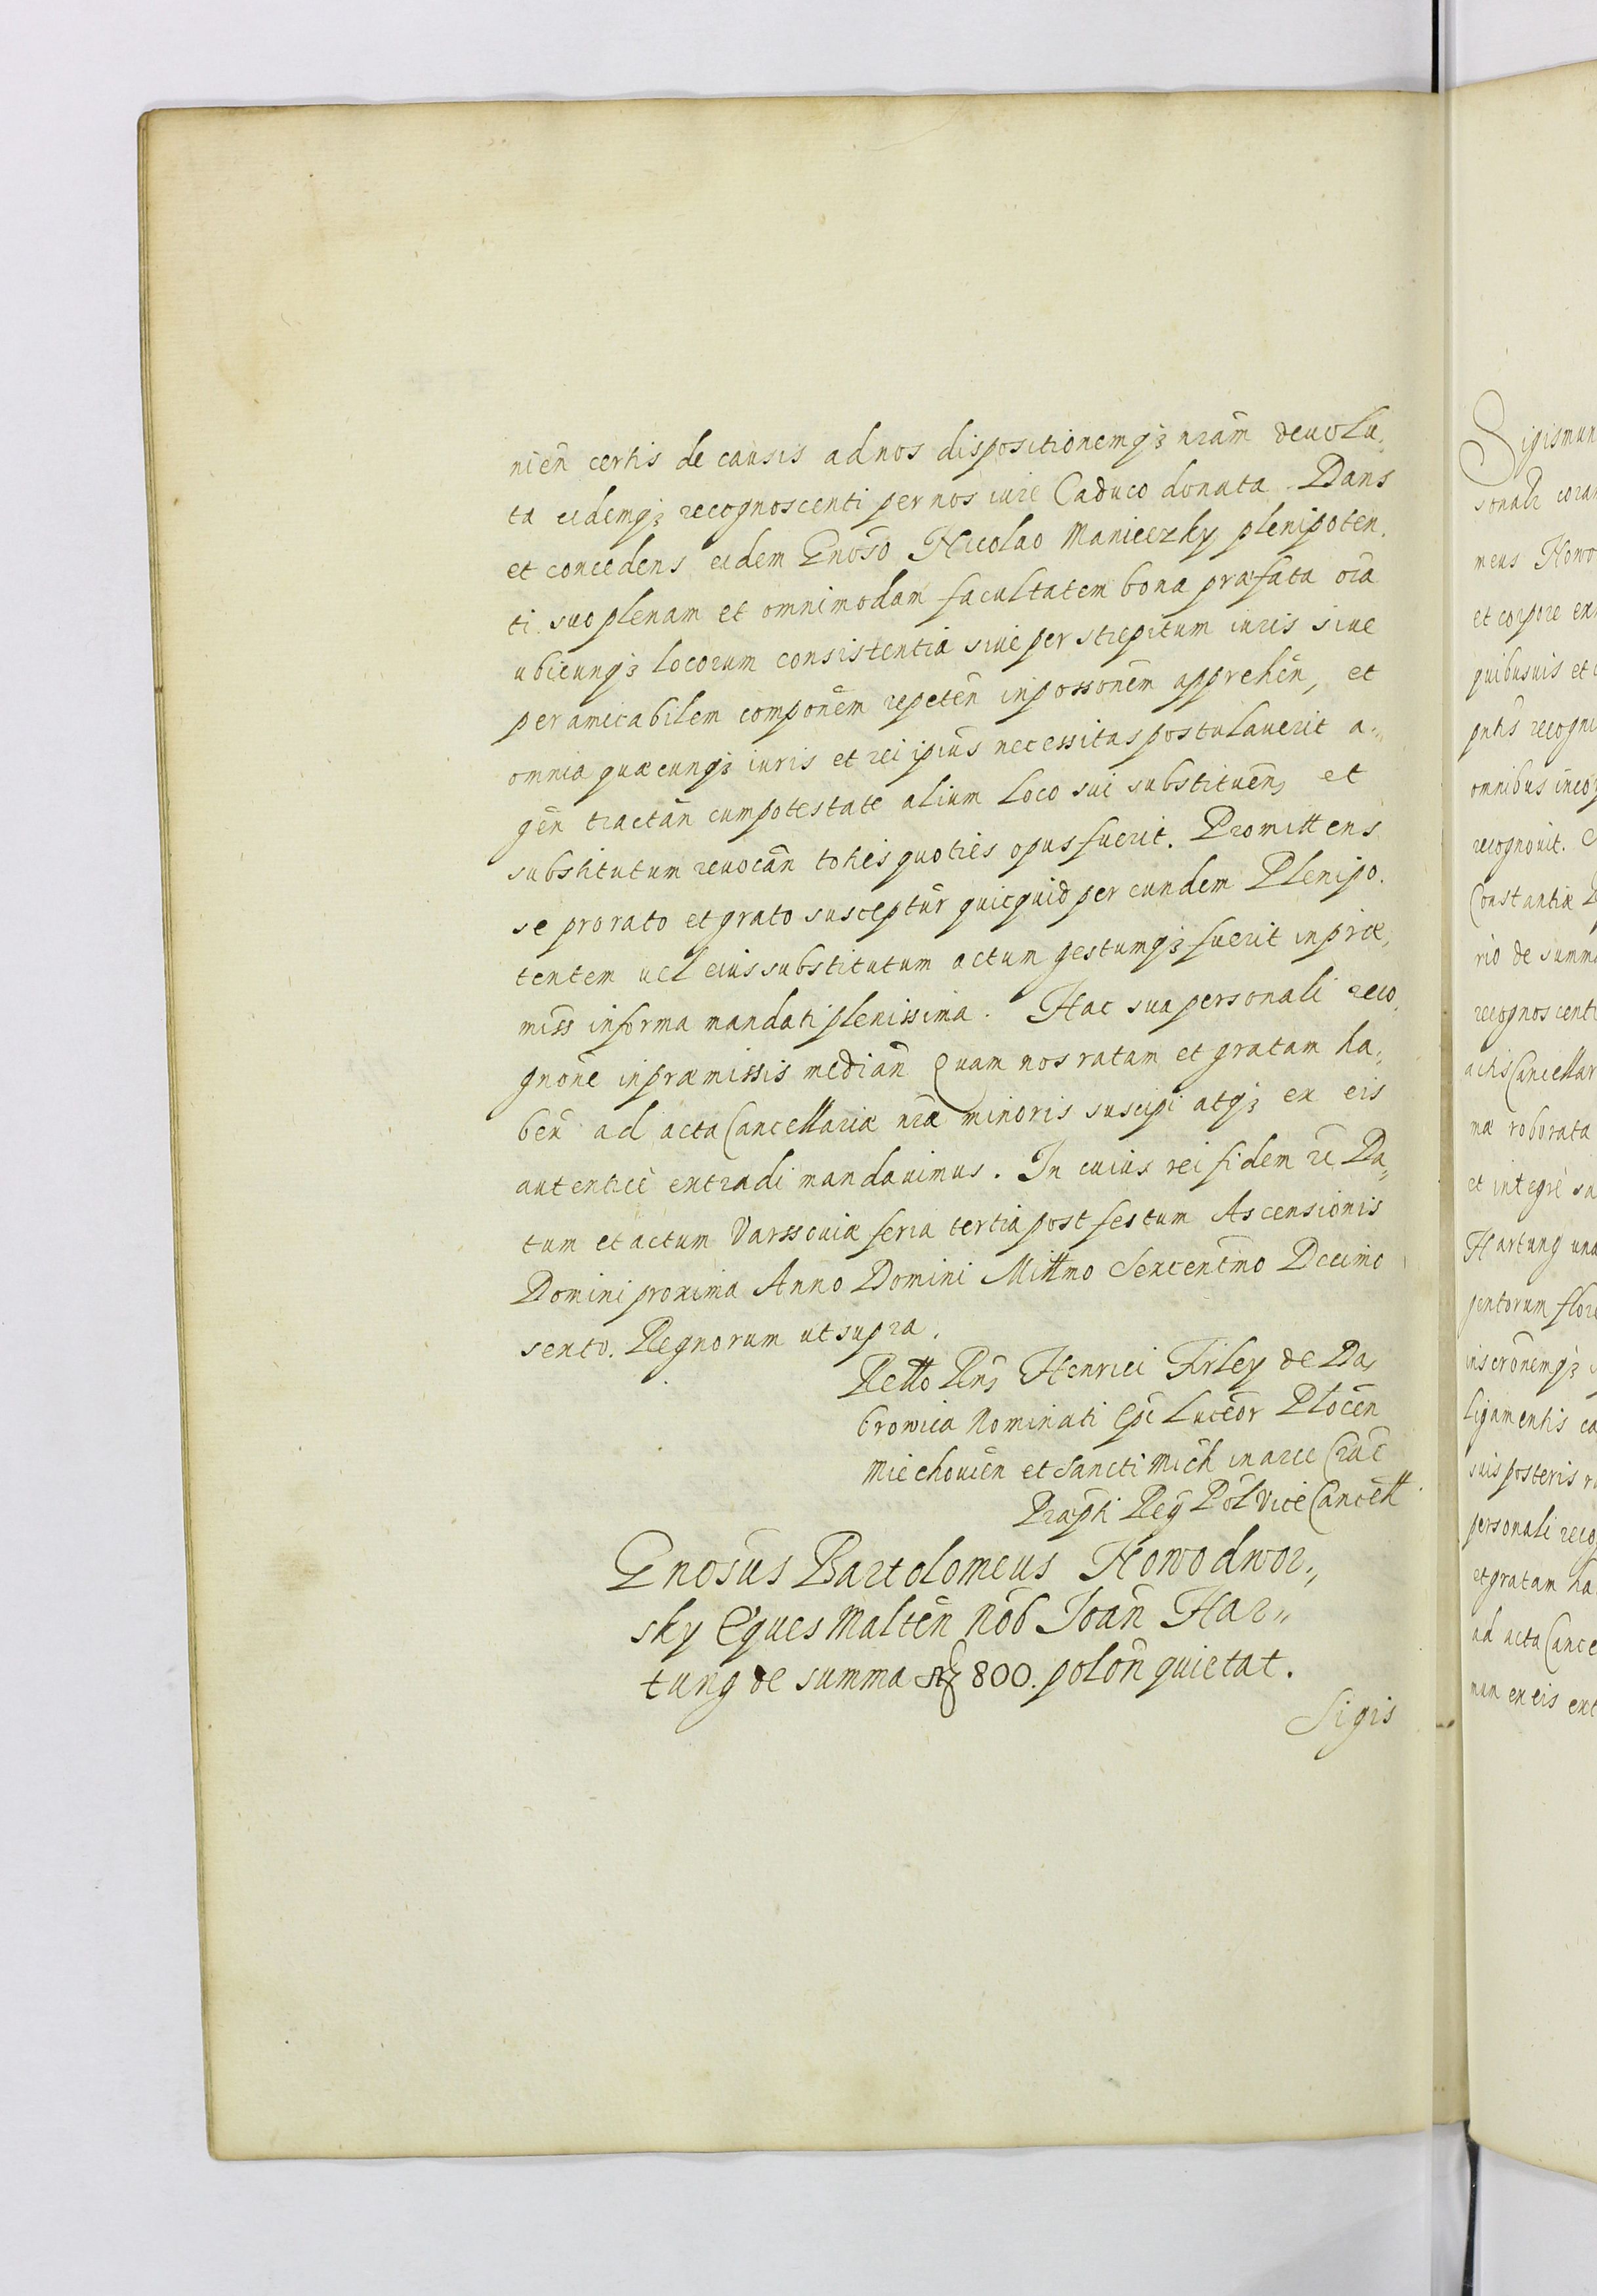 nien̄ certis de causis ad nos dispositionemqꝫ nr̄am deuolu,
ta eidemqꝫ recognoscenti per nos iure Caduco donata. Dans
et concedens eidem Gn̄oso Nicolao Manieczky plenipoten,
ti suo plenam et omnimodam facultatem bona præfata oīa
ubicunqꝫ locorum consistentia siue per strepitum iuris siue
per amicabilem compon̄em repeten̄ in posson̄em apprehen̄, et
omnia quæcunqꝫ iuris et rei ip̄ius necessitas postulauerit a,,
gen̄ tractan̄ cum potestate alium loco sui substituen̄, et
substitutum reuocan̄ toties quoties opus fuerit. Promittens
se pro rato et grato susceptur̄ quicquid per eundem Plenipo,
tentem uel eius substitutum actum gestumqꝫ fuerit in præ,
miss̄ in forma mandati plenissima. Hac sua personali reco,
gnōne in præmissis median̄ Quam nos ratam et gratam ha,
ben̄ ad acta Cancellariæ nr̄æ minoris suscipi atqꝫ ex eis
autenticè extradi mandauimus. In cuius rei fidem ac̄ Da,
tum et actum Varssouiæ feria tertia post festum Ascensionis
Domini proxima Anno Domini Millm̄o Sexcentm̄o Decimo
sexto. Regnorum ut supra.
Rello Rn̄di Henrici Firley de Da,
browica Nominati Ep̄i Luceor̄ Plocen̄
Miechouien̄ et Sancti Mich̄ in arce Crac̄
Præpti Reḡ Pol̄ Vice Cancell
Gn̄osus Bartolomeus Nowodwor,,
sky Eques Malten̄ Nob̄ Joan̄ Har,,
tung de summa fl 800. polon̄ quietat.
Sigis
Sigismun
sonalr̄ coram
meus Nowo
et corpore ex
quibusuis et
pn̄tis recogni
omnibus incor
recognouit.
Constantiæ
rio de summa
recognoscenti
actis Cancellar
mæ roborata
et integrè sa
Hartung una
gentorum flore
inscrōnemqꝫ
ligamentis ca
suis posteris
personali reco
et gratam ha
ad acta Cance
mun ex eis ext